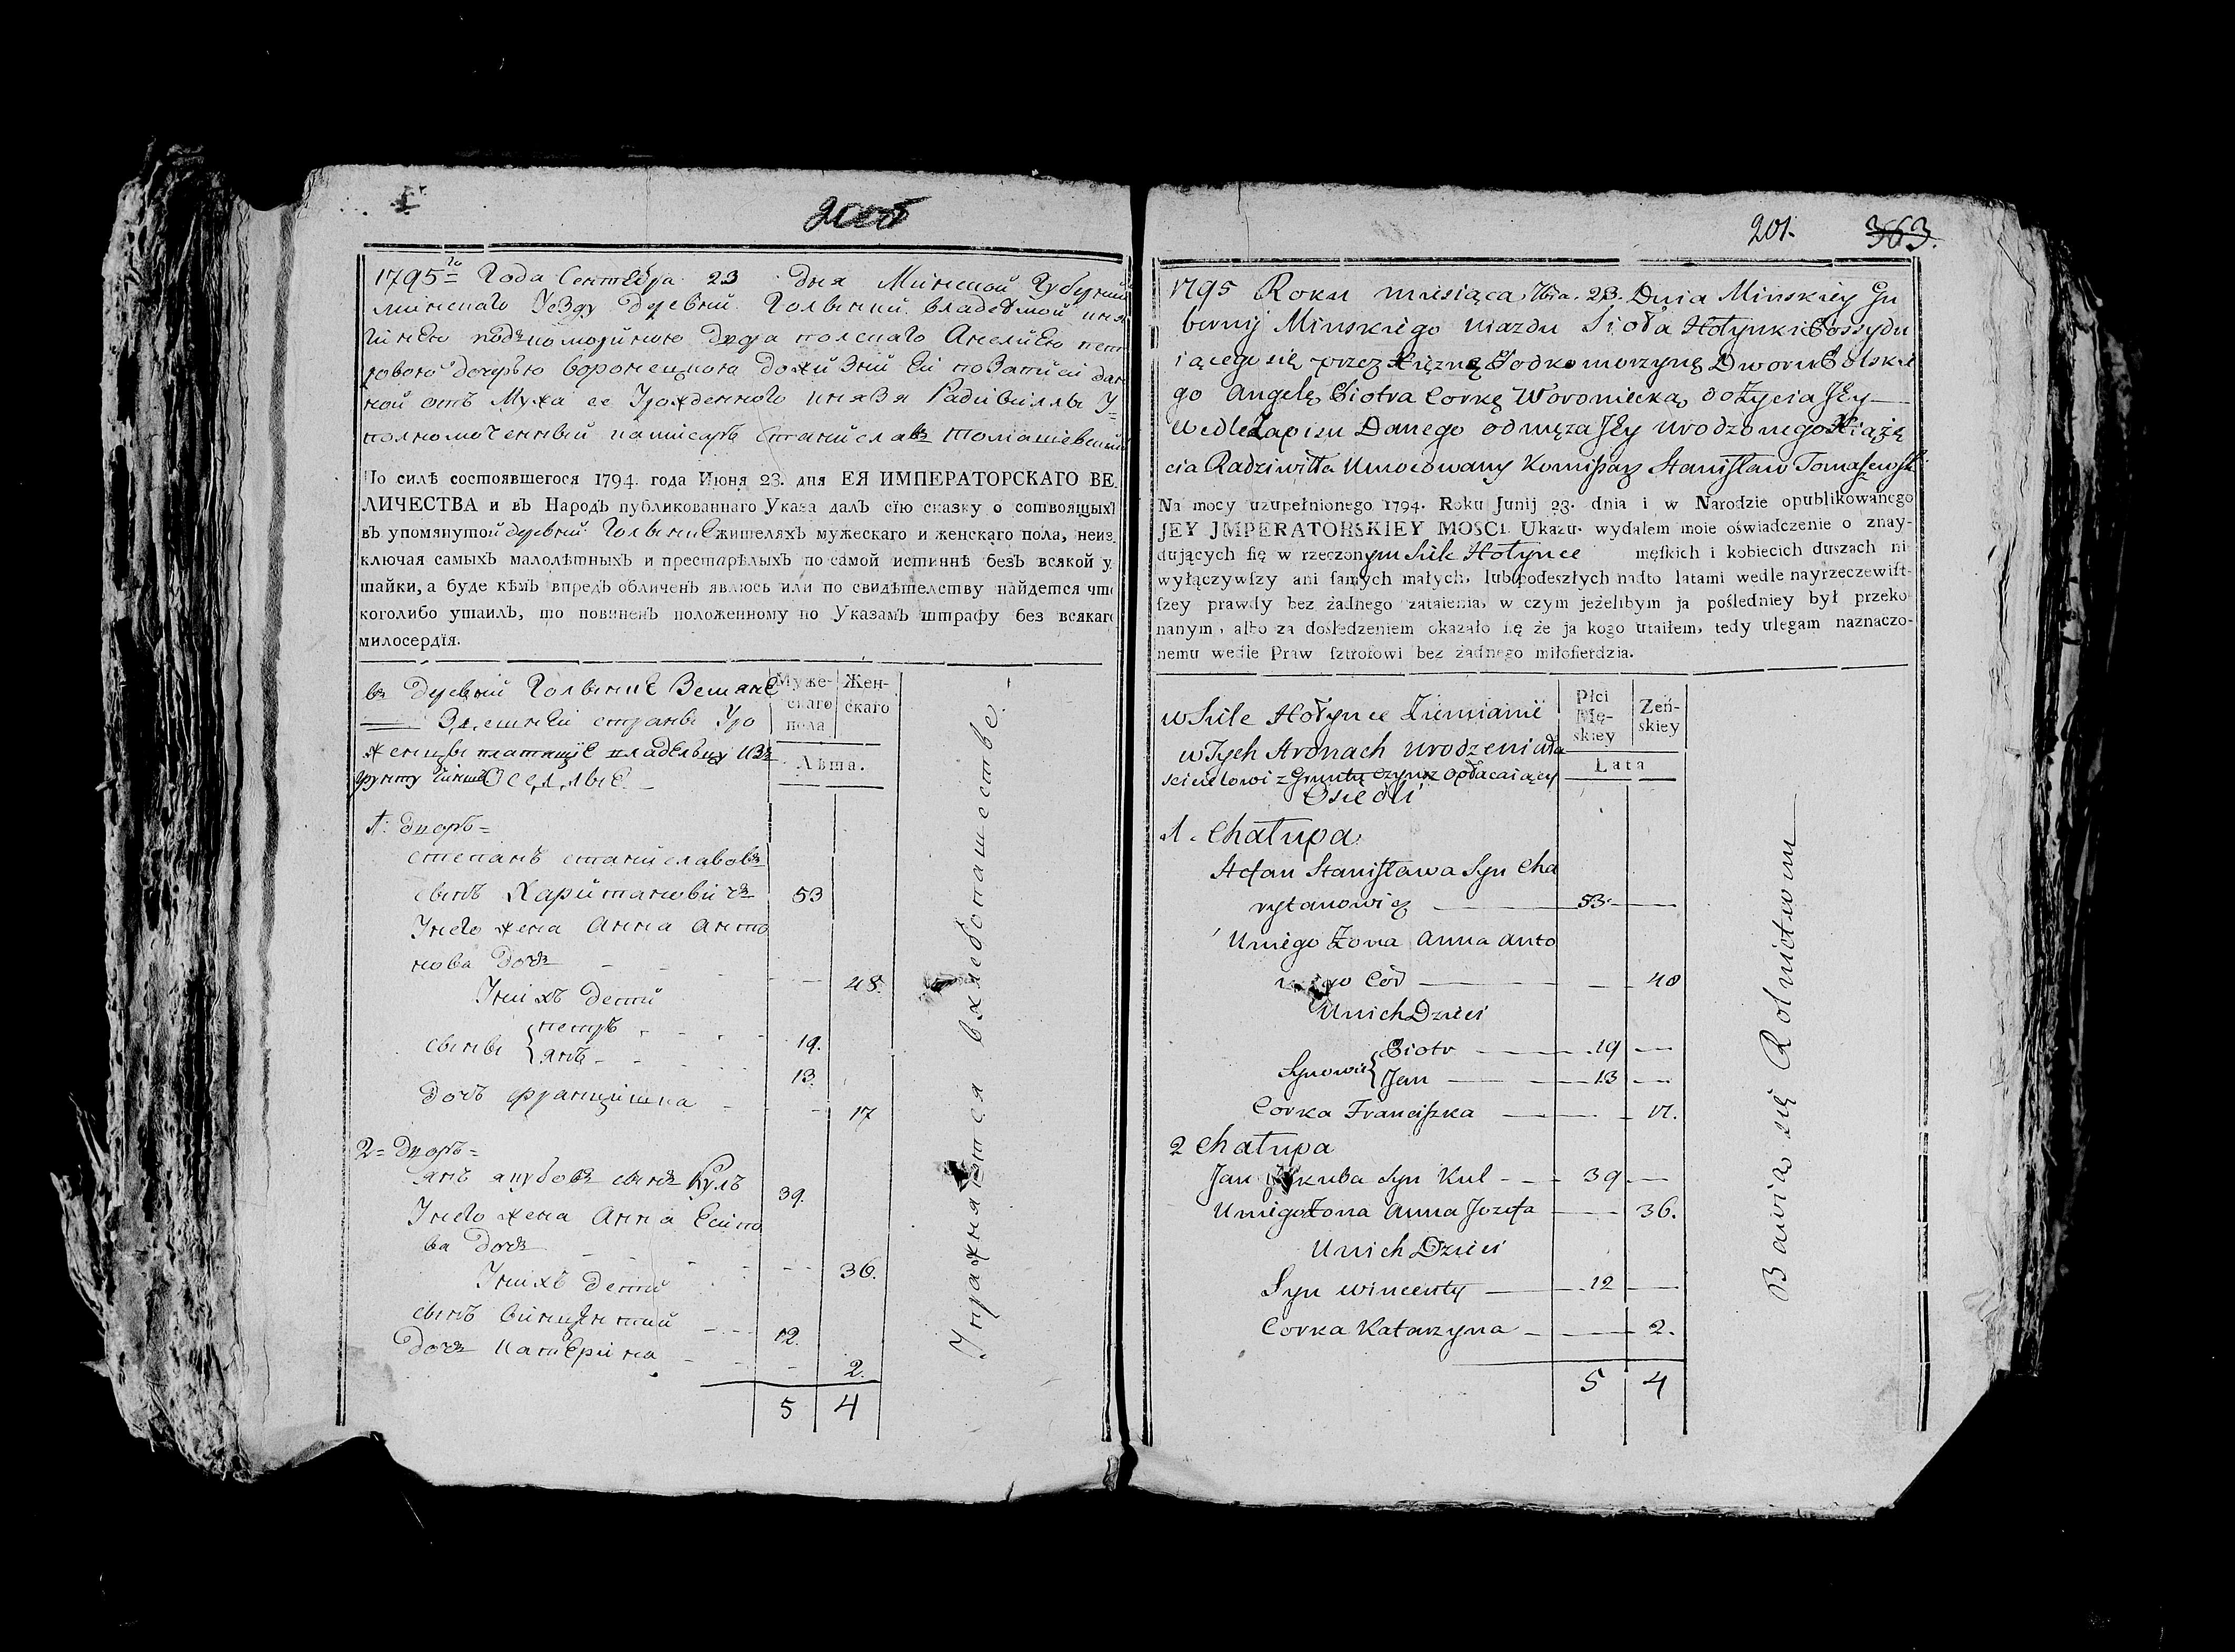 1795го Года Сентебра 23 дня Минской Губерний
минскаго Уезду деревни Голынки владемой кня
гинею подъкоморжиною двора полскаго Ангелиею пет
ровою дочерью воронецкою
ной отъ Мужа ее Урожденного князя Радивиллы У=
полномоченный Станиславъ Томашевский
По силѣ состоявшегося 1794. года Июня 23. дня ЕЯ ИМПЕРАТОРСКАГО ВЕ-
ЛИЧЕСТВА и въ Народъ публикованнаго Указа далъ сїю сказку о состоящихъ
въ упомянутой деревни Голынке жителяхъ мужескаго и женскаго пола, неиз-
ключая самыхъ малолѣтныхъ и престарѣлыхъ по самой истиннѣ безъ всякой у-
тайки, а буде кѣмъ впредь обличенъ явлюсь или по свидѣтелству найдется что
коголибо утаилъ, то повиненъ положенному по Указамъ штрафу без всякаго
милосердїя.
въ деревни Голынке Земяне
Здешней страны Уро
женцы платящие владельцу изъ
грунту чиншъ Оселлые
Муже-
скаго
пола
Жен-
скаго
Лѣта.
1: дворъ=
степанъ станиславовъ
сынъ Харитановичъ 53
Унего жена Анна Анто
нова дочъ 48.
Унихъ дети
сыны { петръ 19.
янъ 13.
дочъ францишка 17
2= дворъ=
янъ якубовъ сынъ Кулъ 39.
Унего жена Анна Есипо
ва дочъ 36.
Унихъ дети
сынъ винцентий 12.
дочъ катерина 2.
5 4
Упражняются вхлебопашестве.
201. 363.
1795 Roku miesiąca 7bra. 23. Dnia Minskiey Gu
bernij Minskiego uiazdu Sioła Hołynki Possydu
iącego się przez Xiężnę Podkomorzynę Dworu Polskie
go Angelę Piotra Corkę Woroniecką do Życia Jey
wedle Zapisu Danego od męża Jey urodzonego Xiążę
cia Radziwiłła Umocowany Komisarz Stanisław Tomaszewski
Na mocy uzupełnionego 1794. Roku Junij 23. dnia i w Narodzie opublikowanego
JEY JMPERATORSKIEY MOSCI. Ukazu. wydałem moie oświadczenie o znay-
dujących się w rzeczonym Siele Hołynce męſkich i kobiecich duszach ni
wyłączywſzy ani ſamych małych, lub podeszłych nadto latami wedle nayrzeczewiſt-
ſzey prawdy bez żadnego zataienia, w czym jeżelibym ja poślednieÿ był przeko-
nanym, albo za dośledzeniem okazało ſię że ja kogo utaiłem, tedy ulegam naznaczo-
nemu wedle Praw ſztrofowi bez żadnego miłoſierdzia.
w Siele Hołynce Ziemianie
w Tych Stronach urodzeni wła
scicielowi z Gruntu czynsz opłacaiący
Osiedli
Płci
Mę-
skiey
Zeń-
skiey
Lata
1. Chałupa
Stefan Stanisława Syn Cha
rytanowicz 53.
Uniego Żona Anna Anto
niego Cór 48
Unich Dzieci
Synowie { Piotr 19
Jan 13
Corka Franciszka 17.
2 Chałupa
Jan Jakuba Syn Kul 39
Uniego Żona Anna Jozefa 36.
Unich Dzieci
Syn Wincenty 12
Corka Katarzyna 2.
5 4
Bawią się Rolnictwem